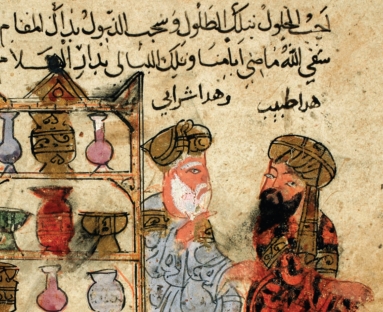 احب الحلول بتلك الطلول وسحب الذيول بدار المقام
سقى الله ماضي ايامنا وتلك الليالي بدار السلام
هذا طبيب وهذا شرابي